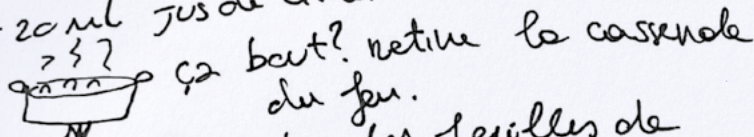 20 ml jus de
ça bout? retire la casserole
du feu.
feuilles de